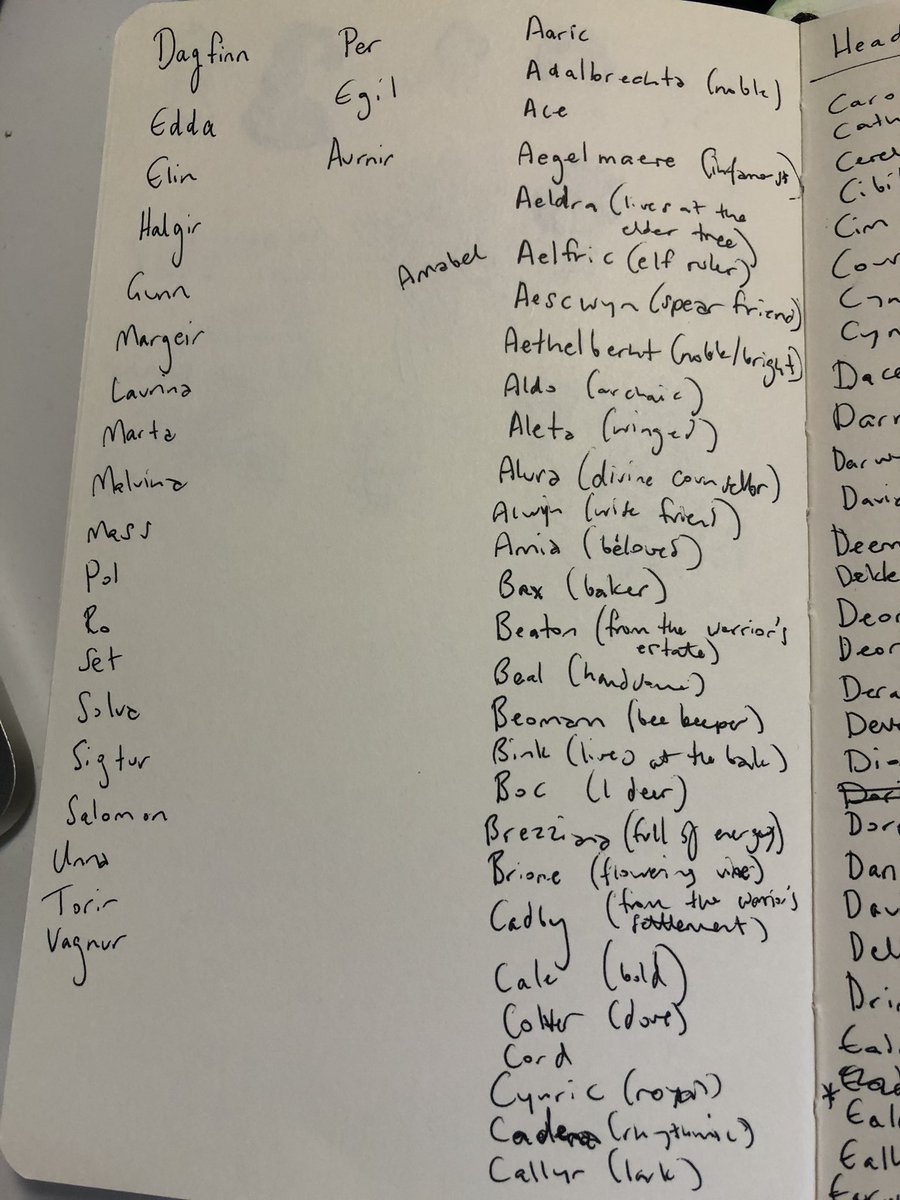 Dagfinn
Edda
Elin
Halgir
Gunn
Margeir
Laurina
Marta
Malvina
Mass
Pol
Ro
Set
Solva
Sigtur
Salomon
Unna
Torir
Vagnur
Per
Egil
Aurnir
Amabel
Aaric
Adalbrechta (noble)
Ace
Aegelmaere
Aeldra (lives at the
elder tree)
Aelfric (elf ruler)
Aescwyn (spear friend)
Aethelberht (noble/bright)
Aldo (archaic)
Aleta (winged)
Alura (divine counsellor)
Alwyn (wise friend)
Amia (beloved)
Bax (baker)
Beaton (from the warrior's
estate)
Beal (handsome)
Beomann (bee keeper)
Bink (lives at the bank)
Boc (1 deer)
Brezziana (full of energy)
Brione (flowering vine)
Cadby (from the warrior's
settlement)
Cale (bold)
Colter (dove)
Cord
Cynric (royal)
Cadena (rhythmic)
Callyr (lark)
Head
Caro
Cath
Cerel
Cibil
Cim
Cour
Cyn
Cyn
Dace
Darr
Darw
David
Deem
Dekke
Deor
Deor
Dera
Dev
Di
Dor
Dan
Dav
Del
Dri
Eal
Eal